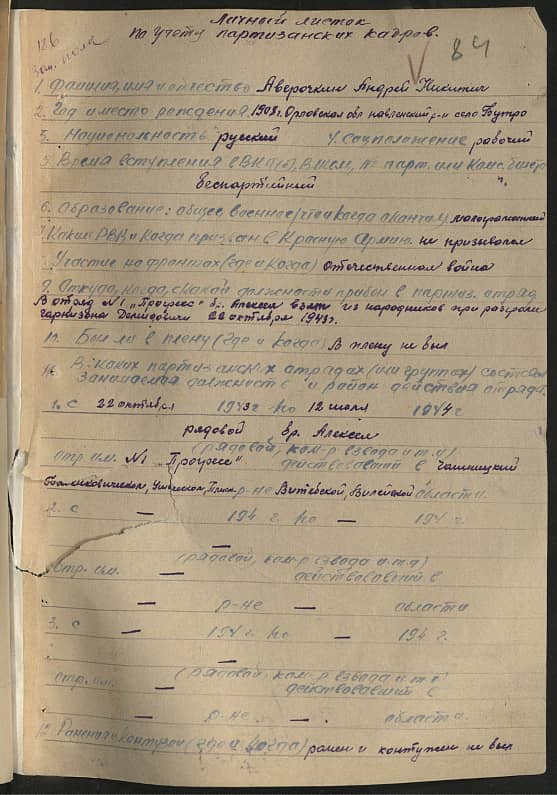 Личный листок
по учету партизанских кадров.
126
84
1. Фамилия, имя и отчество Аверочкин Андрей Никитич
2. Год и место рождения 1908г. Орловская обл Навлинский р-н село Бутро
3. Национальность русский 4. Соцположение рабочий
5. Время вступления в ВКП(б), ВЛКСМ, № парт. или Комс. билета
беспартийный
6. Образование: общее, военное (что и когда окончил) малограмотный
7. Каким РВК и когда призван в Красную Армию не призывался
Участие на фронтах (где и когда) отечественной война
9. Откуда, когда, с какой должности прибыл в партиз. отряд
В отряд №1 „Прогресс" бр. Алексея взят из народников при разгроме
гарнизона Демидовичи 22 октября 1943г.
10. Был ли в плену (где и когда) В плену не был
11. В каких партизанских отрядах (или группах) состоял
занимаемая должность и район действия отряда.
1. с 22 октября 1943г по 12 июля 1944г
рядовой бр. Алексея
(рядовой, ком-р взвода и т.п)
отр. им. №1 „Прогресс" действовавший в Чашницкий
р-не Витебской, Вилейской области.
2. с — 194 г. по — 194 г.
(рядовой, ком-р взвода и т.д)
отр. им. — действовавший в
— р-не — области
3. с — 194 г. по — 194 г.
(рядовой, ком-р взвода и т.п
отр. им. — действовавший в
— р-не — области.
12. Ранения и контузии (где и когда) ранен и контужен не был